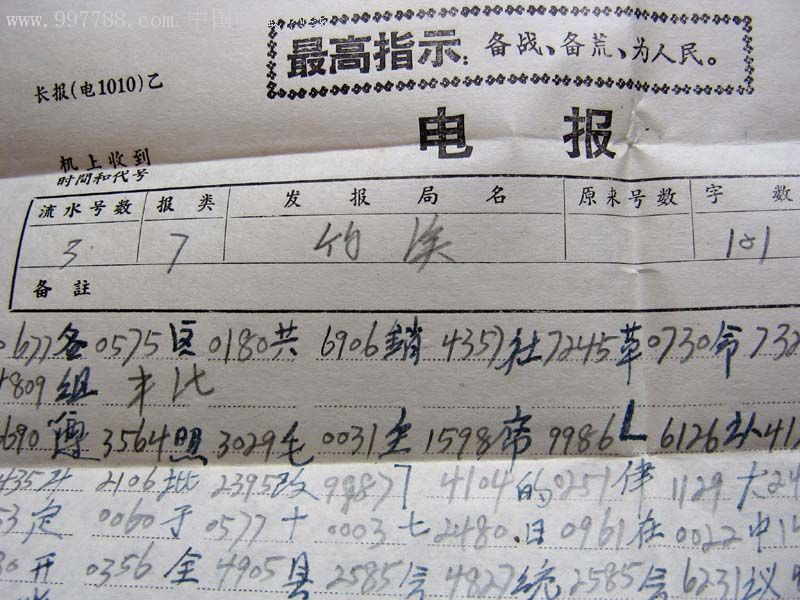 www.997788.com 中国收
最高指示：备战、备荒、为人民。
长报(电1010)乙
电报
机上收到
时间和代号
流水号数 报类 发报局名 原来号数 字数
3 7 竹溪 101
备註
0677各 0575区 0180共 6906銷 4357社 7245革 0730命 732
4809组
690 3564照 3029毛 0031主 1598席 9986 6126 41
4354 2106批 2395改 9987 4104的 0251伟 1129大 24
53定 0060于 0577十 0003七 2480.日 0961在 0022中 14
30开 0356全 4905县 2585会 4827统 2585会 6231议